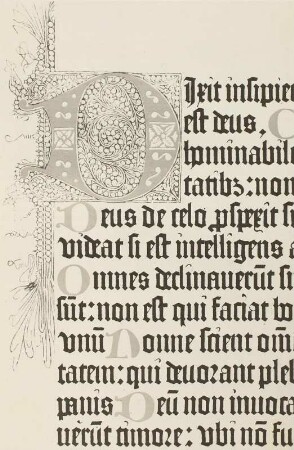 Dixit insipie
est deus. C
hominabile
tatibꝫ: non
Deus de celo ꝓspexit s
videat si est intelligens a
Omnes declinaverūt si
sūt: non est qui faciat bo
vnū Nonne scient om̄
tatem: qui devorant pleb
panis Deū non invoca
verūt timore: vbi nō fu